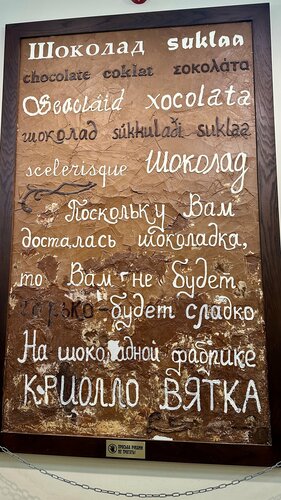 Шоколад suklaa
chocolate coklat σοκολάτα
Seacláid xocolata
шоколад súkkulaði suklaa
scelerisque Шоколад
Поскольку Вам
досталась шоколадка,
то Вам не будет
горько - будет сладко
На шоколадной фабрике
КРИОЛЛО ВЯТКА
ПРОСЬБА РУКАМИ
НЕ ТРОГАТЬ!